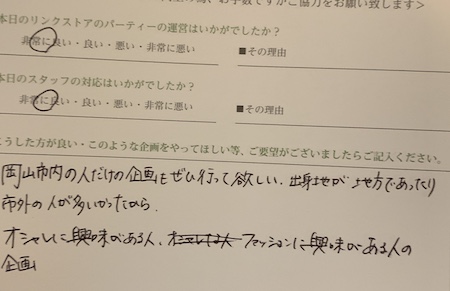 お手数ですがご協力をお願い致します>
本日のリンクストアのパーティーの運営はいかがでしたか?
非常に良い・良い・悪い・非常に悪い ■その理由
本日のスタッフの対応はいかがでしたか?
非常に良い・良い・悪い・非常に悪い ■その理由
こうした方が良い・このような企画をやってほしい等、ご要望がございましたらご記入ください。
岡山市内の人だけの企画もぜひ行って欲しい。出身地が地方であったり
市外の人が多いかったから。
オシャレに興味がある人、オシャレな人 ファッションに興味がある人の
企画